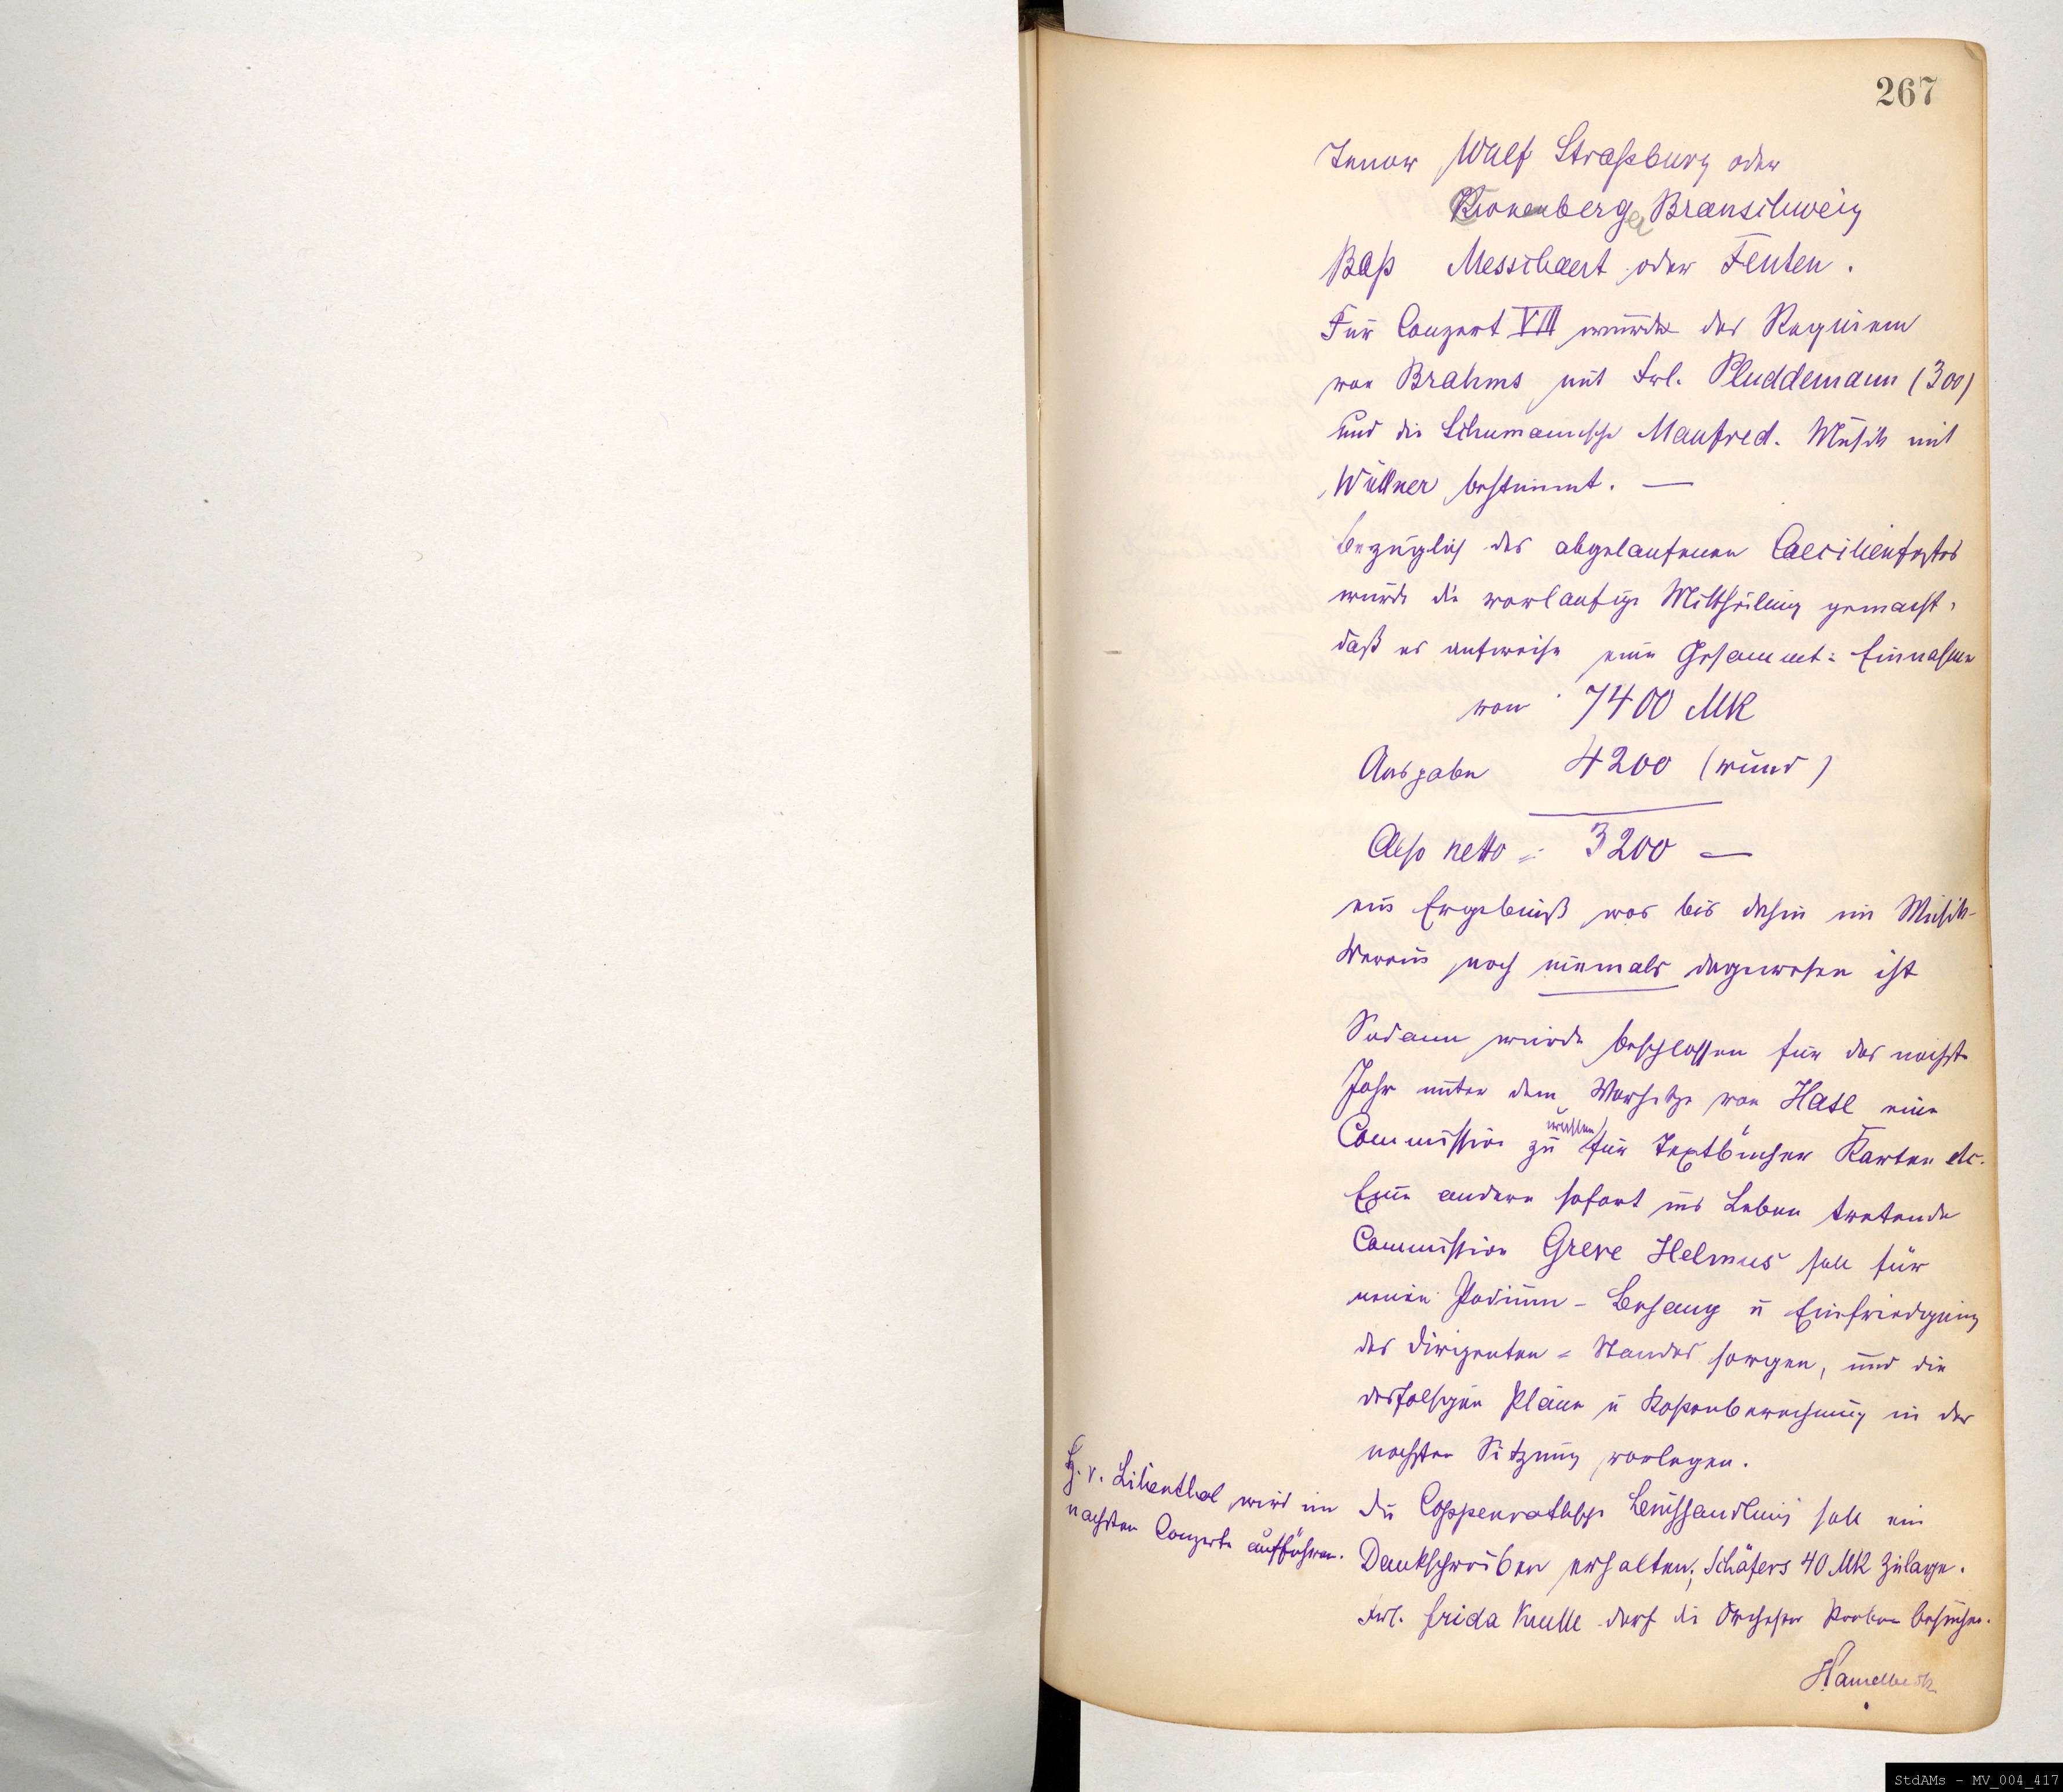 267
Tenor Wulf Straßburg oder
Kronenberg Braunschweig
Baß Messchaert oder Fenten.
Für Conzert VIII wurde das Requiem
von Brahms mit Frl. Pluddemann (300)
und die Schumannsche Manfred-Musik mit
Wüllner bestimmt. —
Bezüglich des abgelaufenen Caecilienfestes
wurde die vorlaufige Mittheilung gemacht,
daß es aufweise eine Gesammt-Einnahme
von 7400 MK
Ausgabe 4200 (rund)
Also netto = 3200 —
ein Ergebniß was bis dahin im Musik-
Verein noch niemals dagewesen ist
Sodann wurde beschlossen für das nächste
Jahr unter dem Vorsitze von Hase eine
Commission zu wählen für Textbücher Karten etc.
Eine andere sofort ins Leben tretende
Commission Greve Helmus soll für
neuen Podium-Behang u Einfriedigung
des Dirigenten-Standes sorgen, und die
desfalsigen Pläne u Kostenberechnung in der
nächsten Sitzung vorlegen.
H. v. Lilienthal wird im
nächsten Conzerte aufführen.
Die Coppenrathsche Buchhandlung soll ein
Dankschreiben erhalten; Schäfers 40 MK Zulage.
Frl. Frida Krulle darf die Orchester Proben besuchen.
StdAMs - MV_004_417